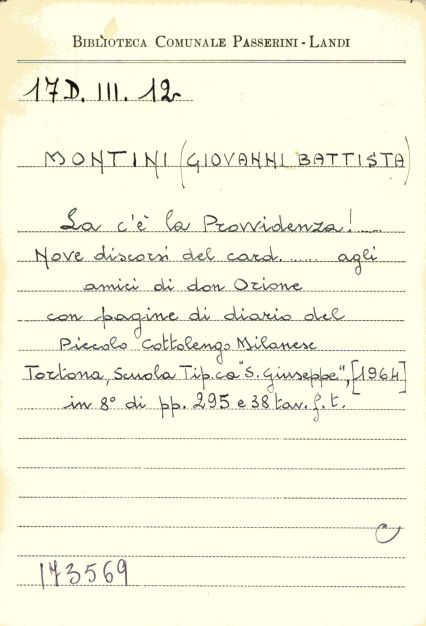 BIBLIOTECA COMUNALE PASSERINI - LANDI
17D. III. 12
MONTINI (GIOVANNI BATTISTA)
La c'è la Provvidenza! .....
Nove discorsi del card. ....... agli
amici di don Orione
con pagine di diario del
Piccolo Cottolengo Milanese
Tortona, Scuola Tip.ca "S. Giuseppe", [1964]
in 8° di pp. 295 e 38 tav. f. t.
173569